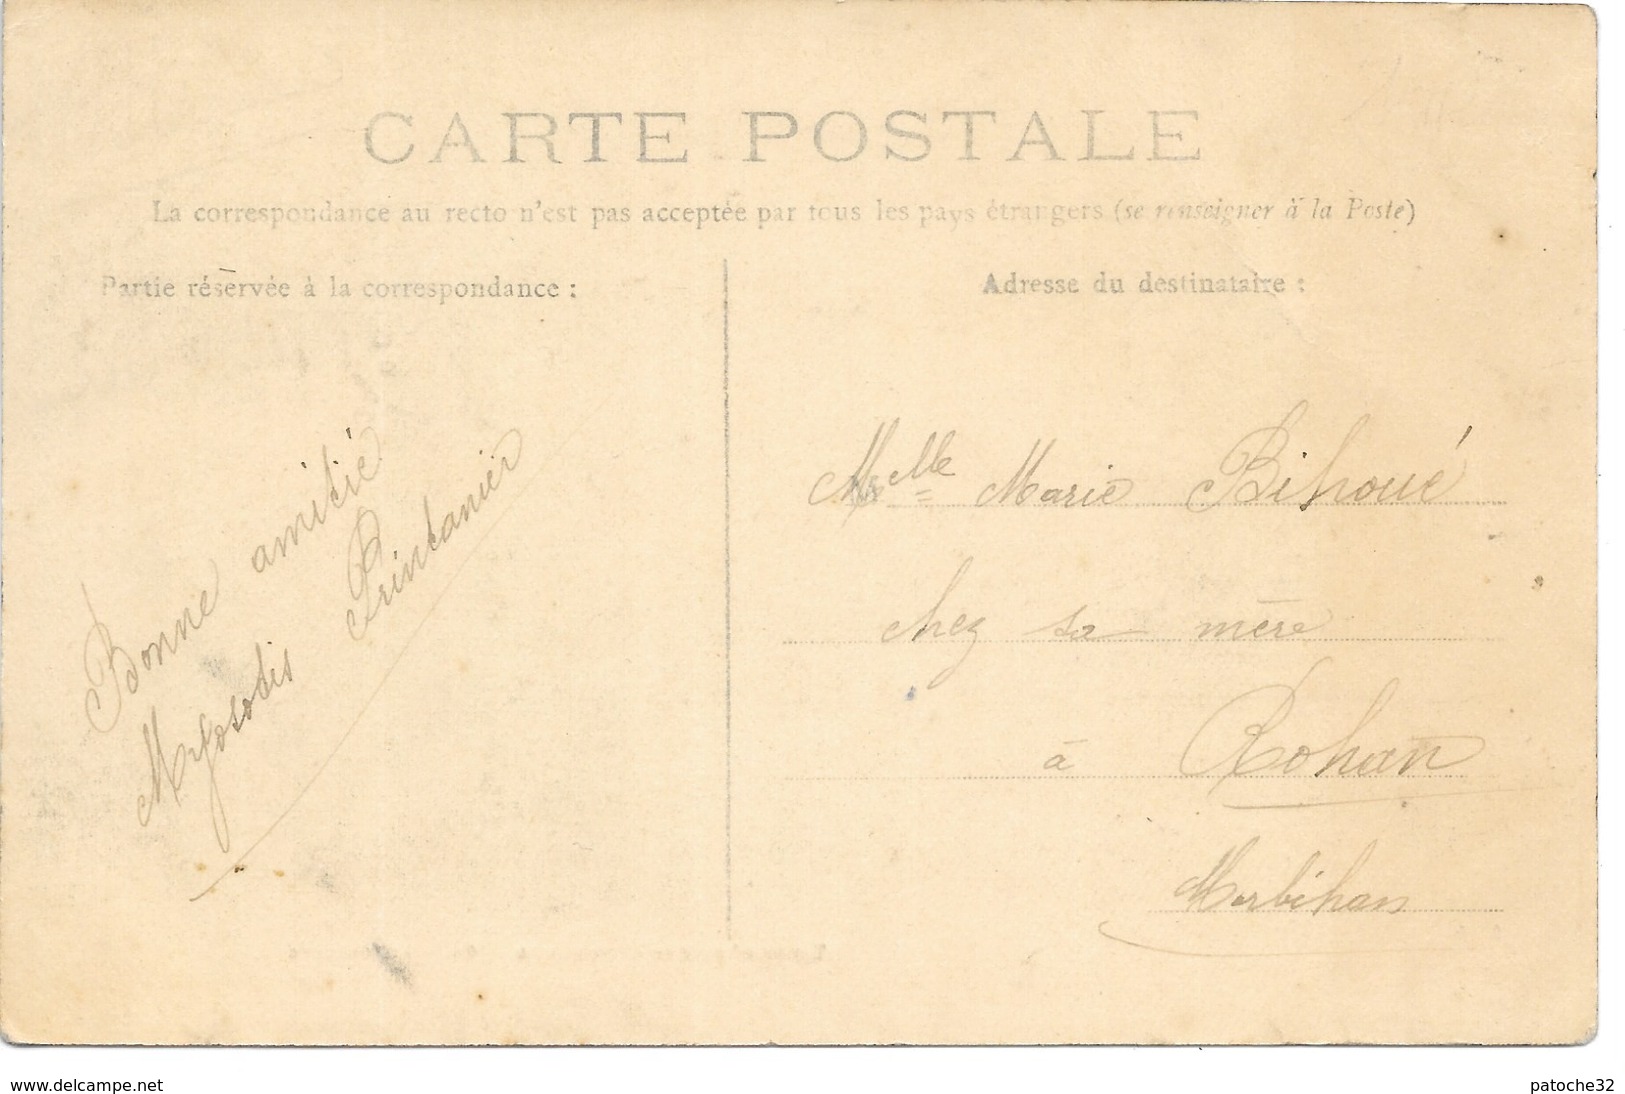 CARTE POSTALE
La correspondance au recto n'est pas acceptée par tous les pays étrangers (se renseigner à la Poste)
Partie réservée à la correspondance :
Adresse du destinataire :
Bonne amitié
Myosotis Printanier
Melle Marie Bihoué
chez sa mère
à Rohan
Morbihan
www.delcampe.net
patoche32